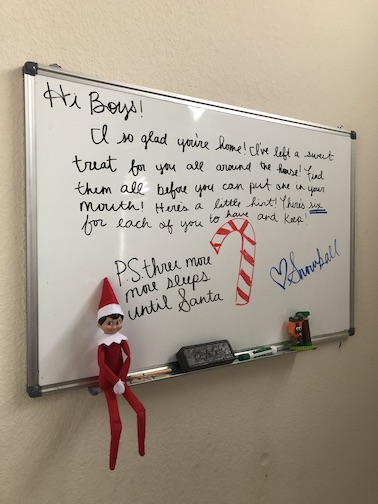 Hi Boys!
I so glad you're home! I've left a sweet
treat for you all around the house! Find
them all before you can put one in your
mouth! Here's a little hint! There's six
for each of you to have and keep!
P.S. three more
more sleeps
until Santa
♡Snowball